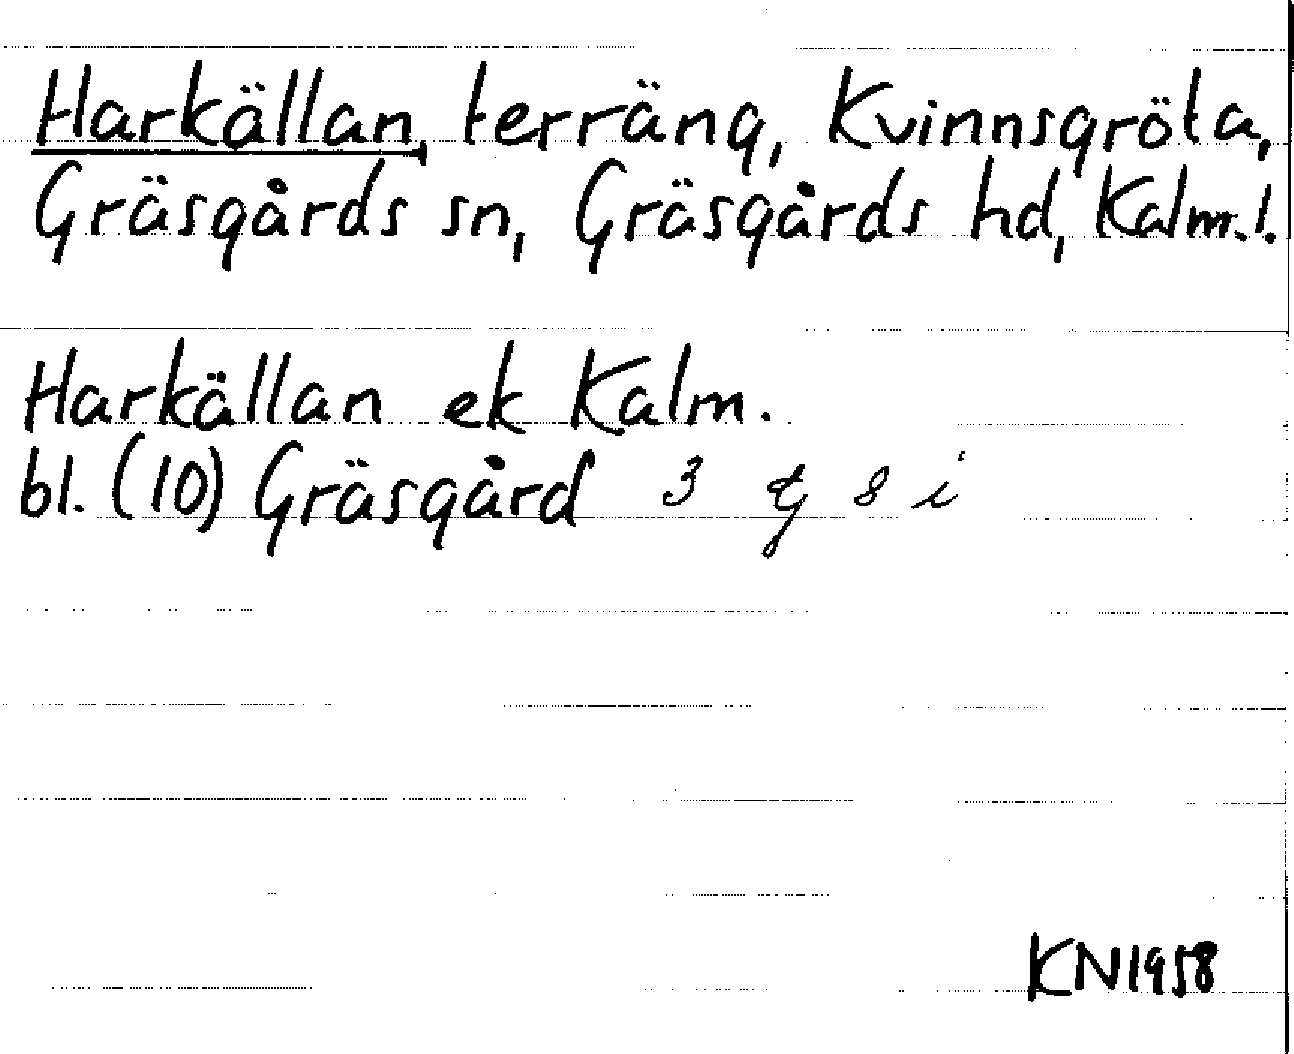 Harkällan, terräng, Kvinnsgröta,
Gräsgårds sn, Gräsgårds hd, Kalm. l.
Harkällan ek Kalm.
bl. (10) Gräsgård 3 g 8 i
KN1958